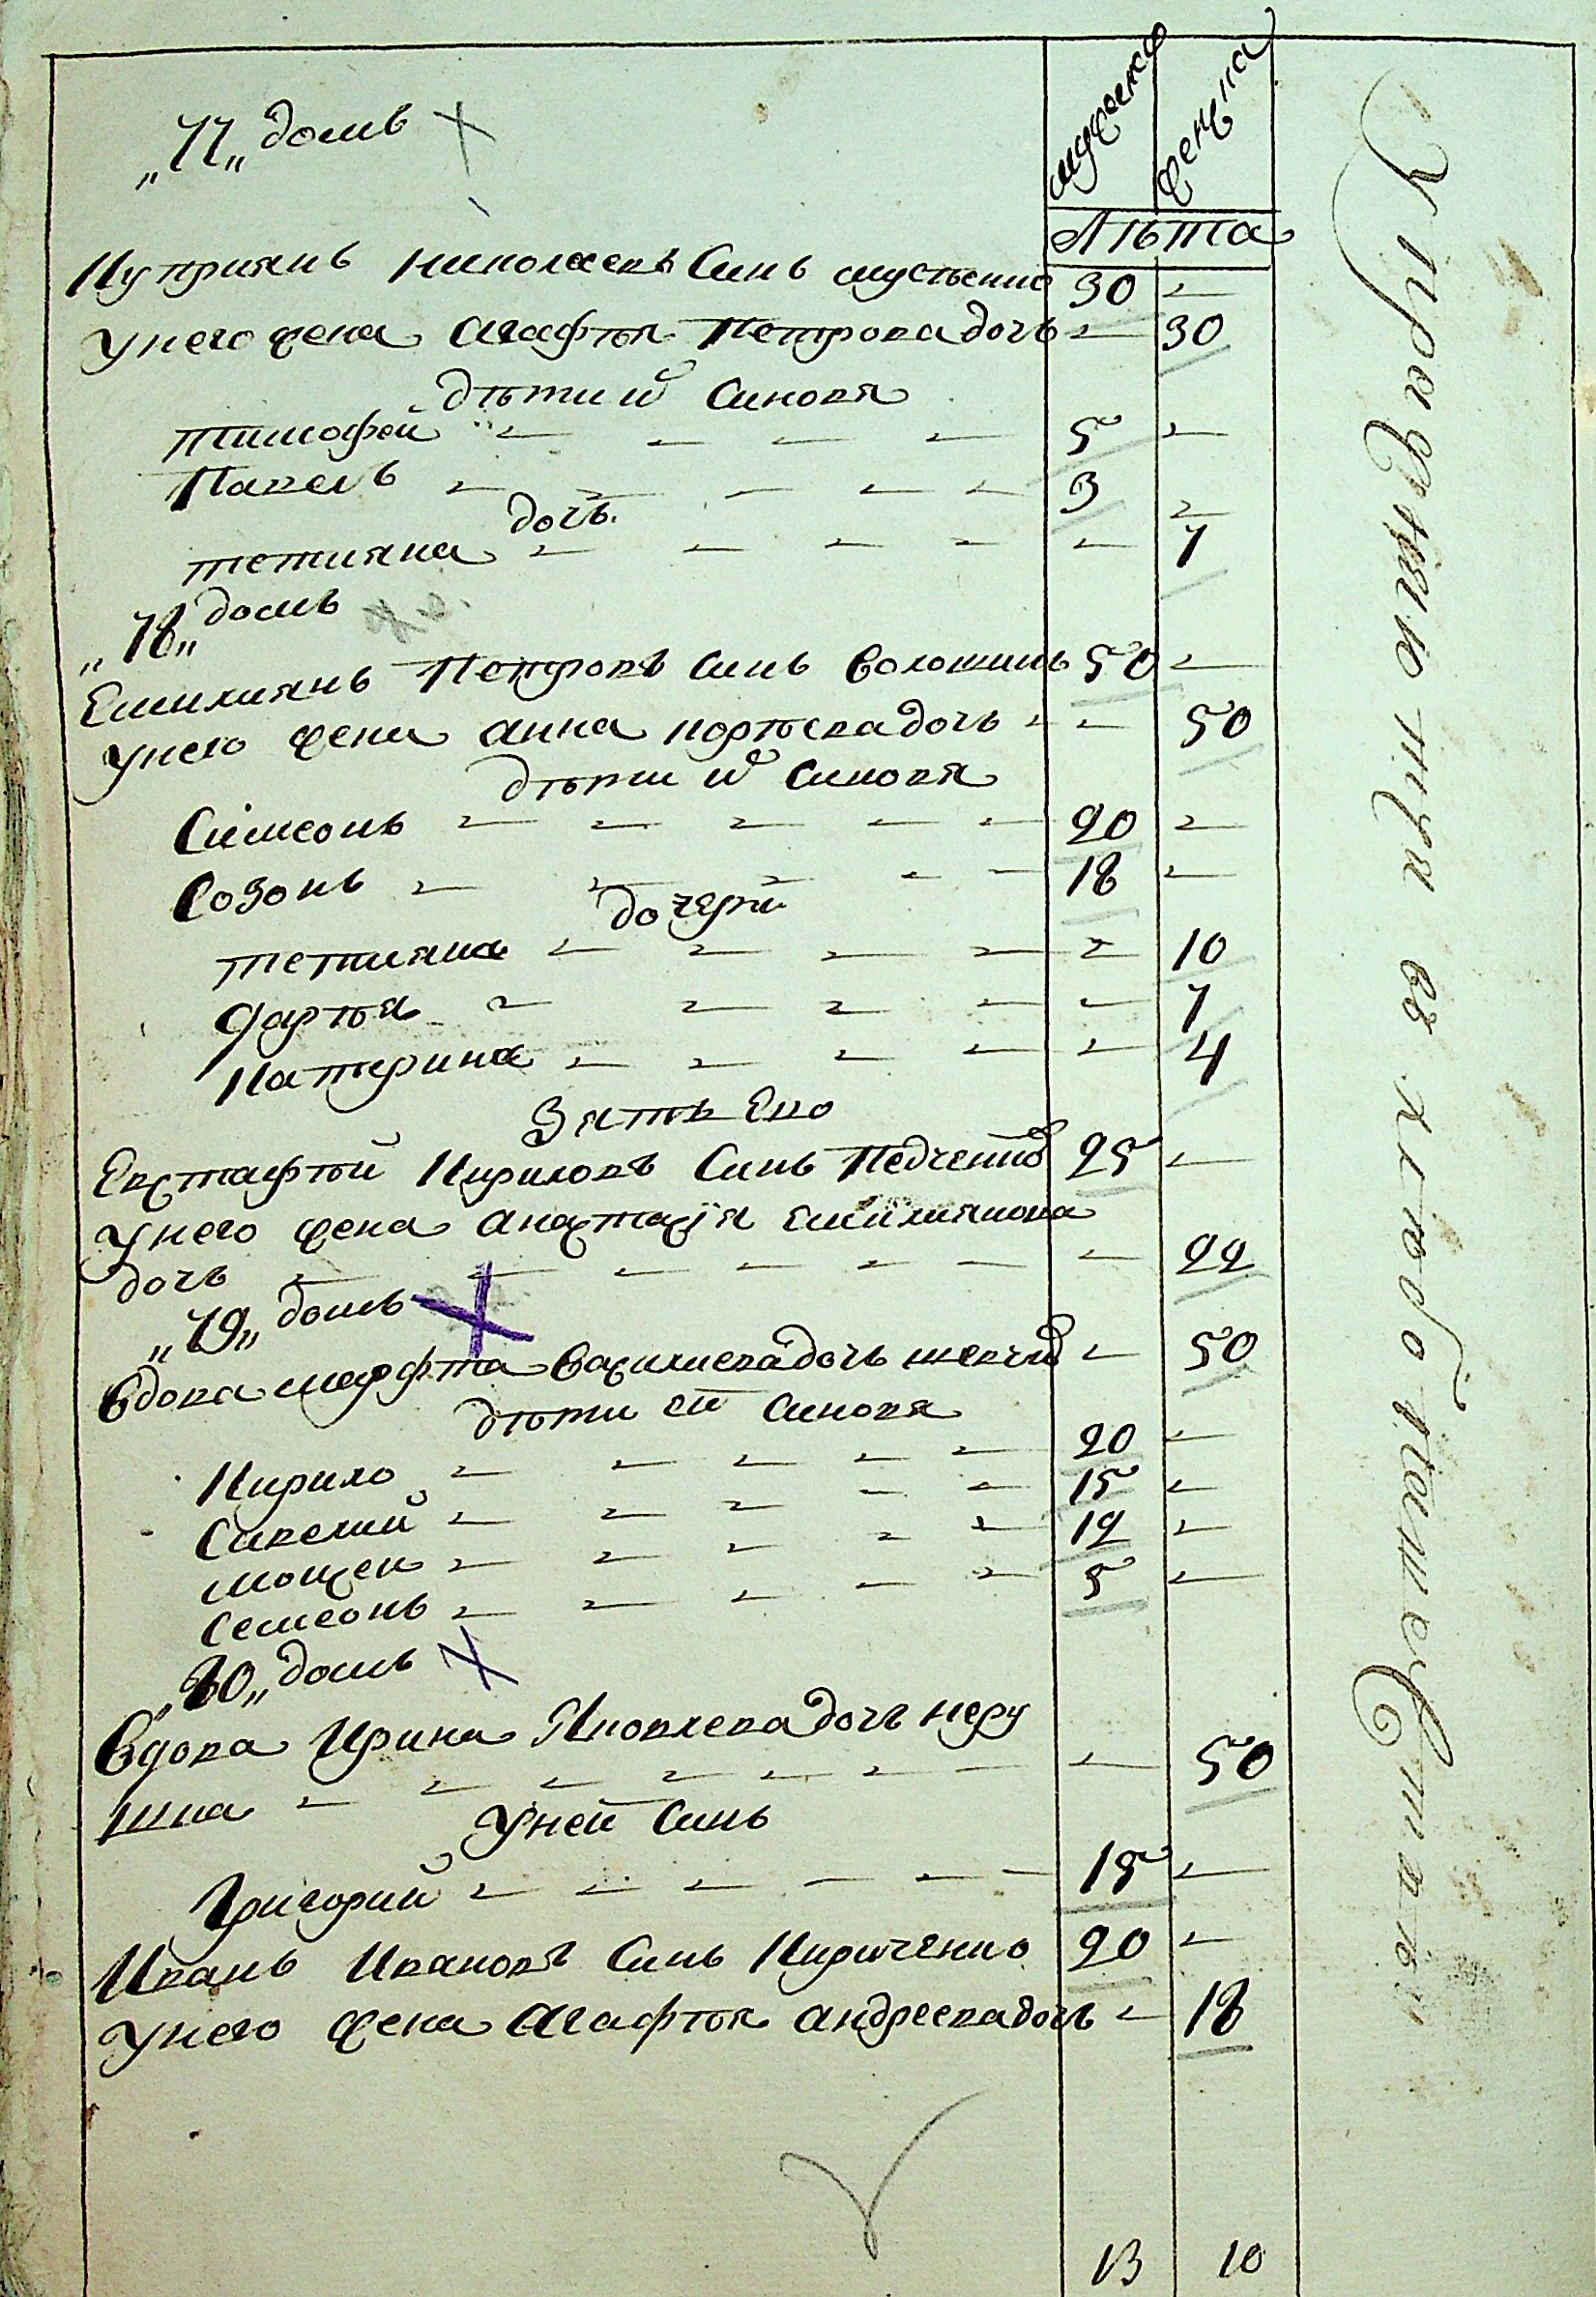 „77„ домъ
мужеска
женска
Лѣта
Куприянъ Николаевъ Синъ мустенко 30 —
Унего жена Агафтя Петрова дочъ — 30
дѣти ихъ Синовя
тимофей — — — — 5 —
Павелъ — — — — — 3 —
дочъ
тетияна — — — — — 7
„78„ домъ
Емилиянъ Петровъ Синъ Волошинъ 50 —
Унего жена Анна дочъ — — 50
дѣти ихъ Синовя
Симеонъ — — — — — 20 —
Созонъ — — — — — 18 —
дочери
тетияна — — — — — 10
Фартя — — — — — 7
Катерина — — — — — 4
Зятъ Ево
Евстафтей Кириловъ Синъ Педченко 25 —
Унего жена Анастасія Емилиянова
дочъ — — — — — — — 22
„79„ домъ
Вдова марфта Василиева дочъ шевчко — 50
дѣти ей Синовя
Кирило — — — — — 20 —
Савелий — — — — — 15 —
мойсей — — — — — 12 —
Семеонъ — — — — — 5 —
„80„ домъ
Вдова Ирина Яковлева дочъ Неру
шка — — — — — — — — 50
Уней Синъ
Григорий — — — — — — 15 —
Иванъ Ивановъ Синъ Кириченко 20 —
Унего жена Агафтя андреева дочъ — 18
13 10
УпражняюTся въ хлебопашестве